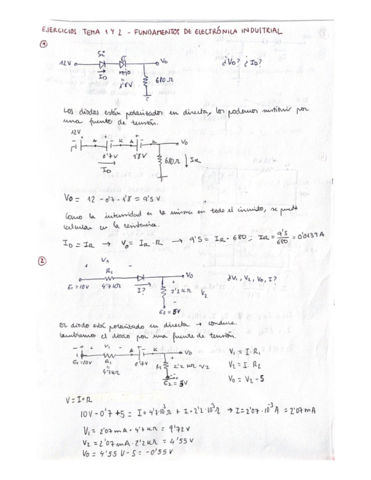 EJERCICIOS TEMA 1 Y 2 - FUNDAMENTOS DE ELECTRÓNICA INDUSTRIAL
①
Si
12V Vo ¿Vo? ¿Io?
ID rojo 680Ω
1'8V
Los diodos están polarizados en directa, los podemos sustituir por
una fuente de tensión.
12V
+ A K - + A K - Vo
0'7V 1'8V 680Ω ↓ IR
ID
Vo = 12 - 0'7 - 1'8 = 9'5 V
Como la intensidad es la misma en todo el circuito, se puede
calcular en la resistencia.
ID = IR → Vo = IR · R → 9'5 = IR · 680 ; IR = 9'5/680 = 0'0139 A
②
+ V1 -
R1 Vo
E1=10V 4'7kΩ I? 2'2kΩ V2 ¿V1, V2, Vo, I?
E2 = 5V
El diodo está polarizado en directa → conduce
cambiamos el diodo por una fuente de tensión.
+ V1 - A K Vo
E1=10V R1 0'7V R2 2'2kΩ V2
4'7kΩ E2 = 5V
V1 = I · R1
V2 = I · R2
Vo = V2 - 5
V = I · R
10V - 0'7 + 5 = I · 4'7·10³ + I · 2'2·10³ → I = 2'07·10⁻³ A = 2'07 mA
V1 = 2'07 mA · 4'7 kΩ = 9'72 V
V2 = 2'07 mA · 2'2 kΩ = 4'55 V
Vo = 4'55 V - 5 = -0'55 V